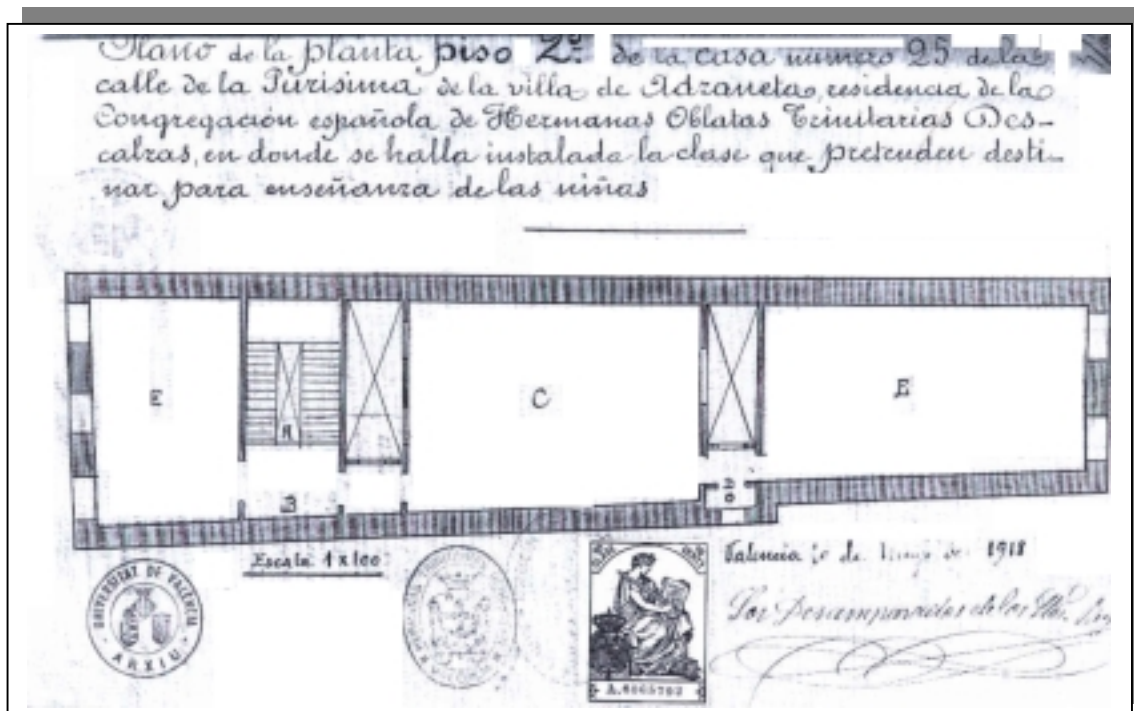 Plano de la planta piso 2º de la casa número 25 de la
calle de la Purisima de la villa de Adzaneta, residencia de la
Congregación española de Hermanas Oblatas Trinitarias Des-
calzas, en donde se halla instalada la clase que pretenden desti-
nar para enseñanza de las niñas
E
A
B
C
D
E
Escala 1 x 100
Valencia de de 1918
UNIVERSITAT DE VALENCIA
ARXIU
Los Desamparados de los